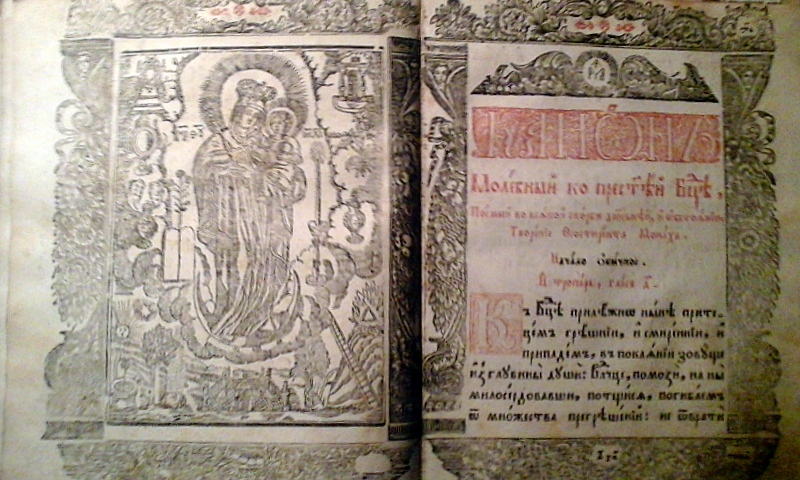 КАНѠНЪ
Молебный ко прест҃ѣй Бц҃ѣ,
Поемый во всѧкой скорби душевнѣй, и
Творенїе Ѳеостирикта Монаха.
Начало обычное.
И тропарь, гласъ д҃.
Къ Бц҃ѣ прилѣжнѡ нынѣ прите-
цемъ грѣшнїи, и смиреннїи, и
припадемъ, въ покаѧнїи зовуще
из̾ глубины души: Вл҃чце, помози, на ны
милосердовавши, потщисѧ, погибаемъ
ѿ множества прегрѣшенїй: не ѿврати